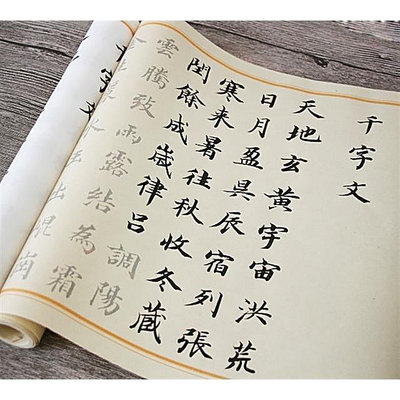 千字文
天地玄黄宇宙洪荒
日月盈昃辰宿列張
寒来暑往秋收冬藏
閏餘成歲律吕調陽
雲騰致雨露結為霜
出崐崗
千字文